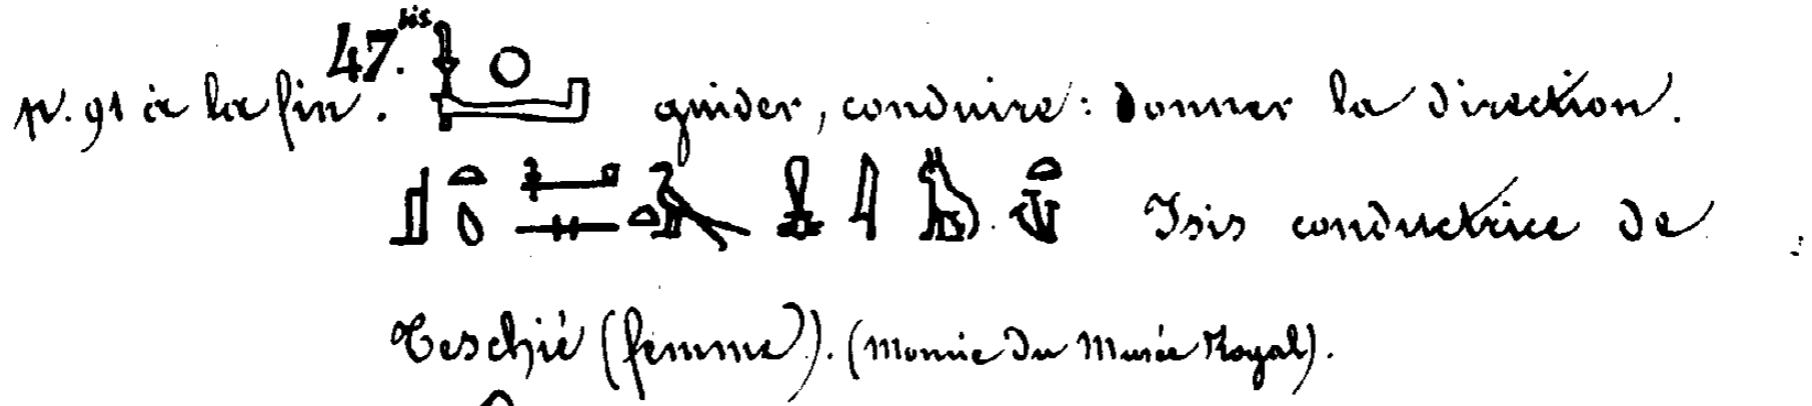 p. 91 à la fin. 47.bis guider, conduire: donner la direction.
Isis conductrice de
Teschié (femme). (Momie du Musée Royal).